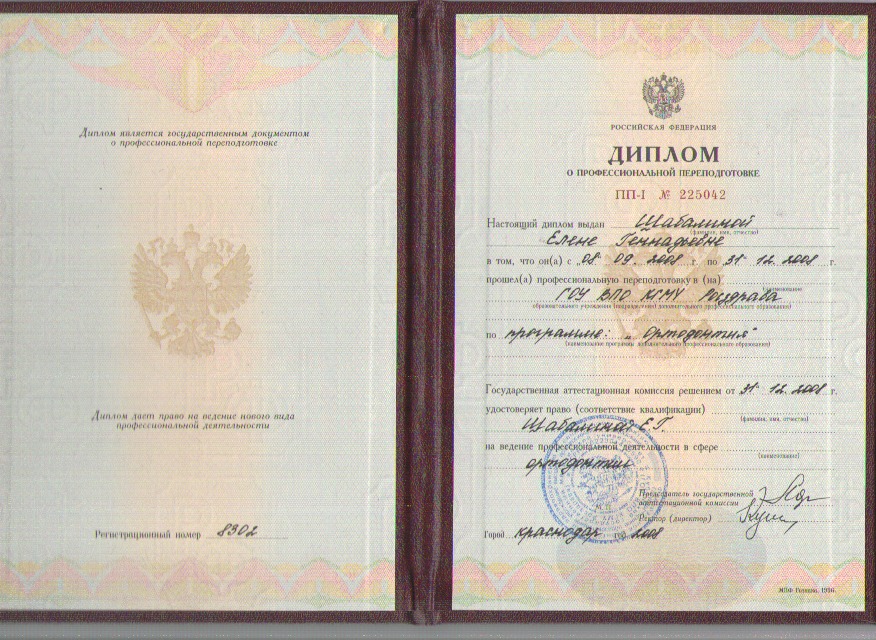 Диплом является государственным документом
о профессиональной переподготовке
Диплом дает право на ведение нового вида
профессиональной деятельности
Регистрационный номер 8302
РОССИЙСКАЯ ФЕДЕРАЦИЯ
ДИПЛОМ
О ПРОФЕССИОНАЛЬНОЙ ПЕРЕПОДГОТОВКЕ
ПП-I № 225042
Настоящий диплом выдан Шабалиной
(фамилия, имя, отчество)
Елене Геннадьевне
в том, что он(а) с „08" 09. 2008 г. по 31 12. 2008 г.
прошел(а) профессиональную переподготовку в (на)
(наименование
ГОУ ВПО КГМУ Росздрава
образовательного учреждения (подразделения) дополнительного профессионального образования)
по программе: „Ортодонтия"
(наименование программы дополнительного профессионального образования)
Государственная аттестационная комиссия решением от 31 12. 2008 г.
удостоверяет право (соответствие квалификации)
(фамилия, имя, отчество)
Шабалиной Е.Г.
на ведение профессиональной деятельности в сфере
(наименование)
ортодонтии
Председатель государственной
аттестационной комиссии
Ректор (директор)
Город Краснодар год 2008
МПФ Гознака. 1996.